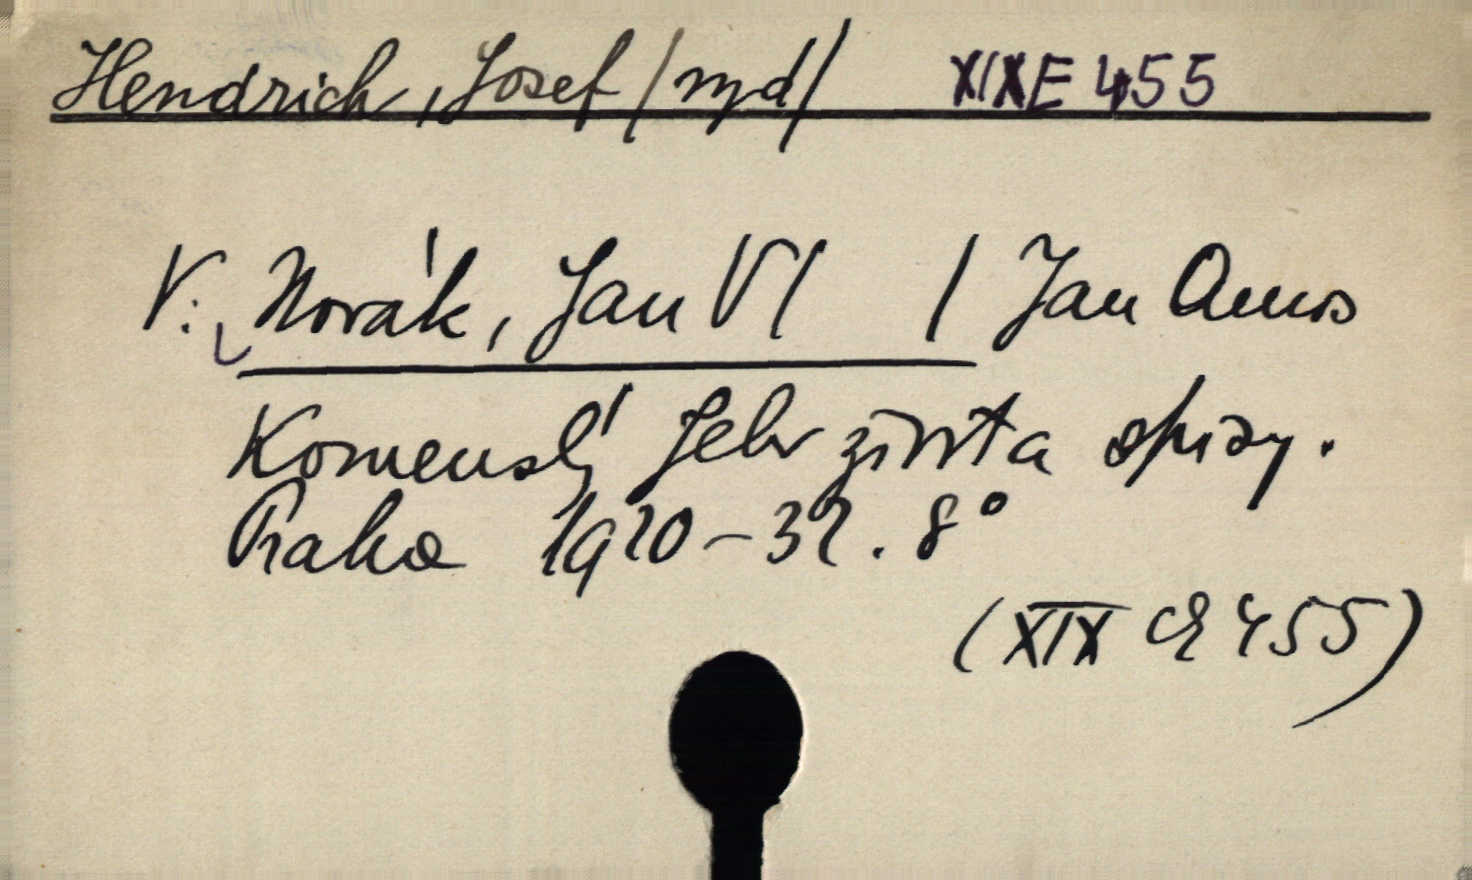 Hendrich, Josef /vyd/ XIX E 455
V: Novák, Jan Vl / Jan Amos
Komenský Jeho život a spisy.
Praha 1920-32. 8°
(XIX E 455)